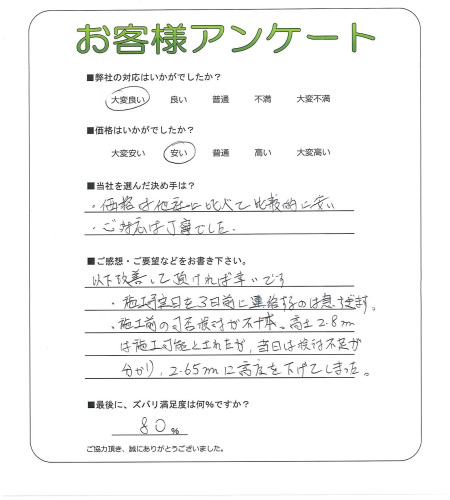 お客様アンケート
■弊社の対応はいかがでしたか？
大変良い 良い 普通 不満 大変不満
■価格はいかがでしたか？
大変安い 安い 普通 高い 大変高い
■当社を選んだ決め手は？
・価格は他社に比べて比較的に安い
・ご対応は丁寧でした.
■ご感想・ご要望などをお書き下さい。
以下改善して頂ければ幸いです
・施工予定日を3日前に連絡するのは急過ぎます。
・施工前の可否検討が不十分。高さ2.8m
は施工可能とされたが，当日は検討不足が
分かり，2.65mに高度を下げてしまった。
■最後に、ズバリ満足度は何％ですか？
80 %
ご協力頂き、誠にありがとうございました。